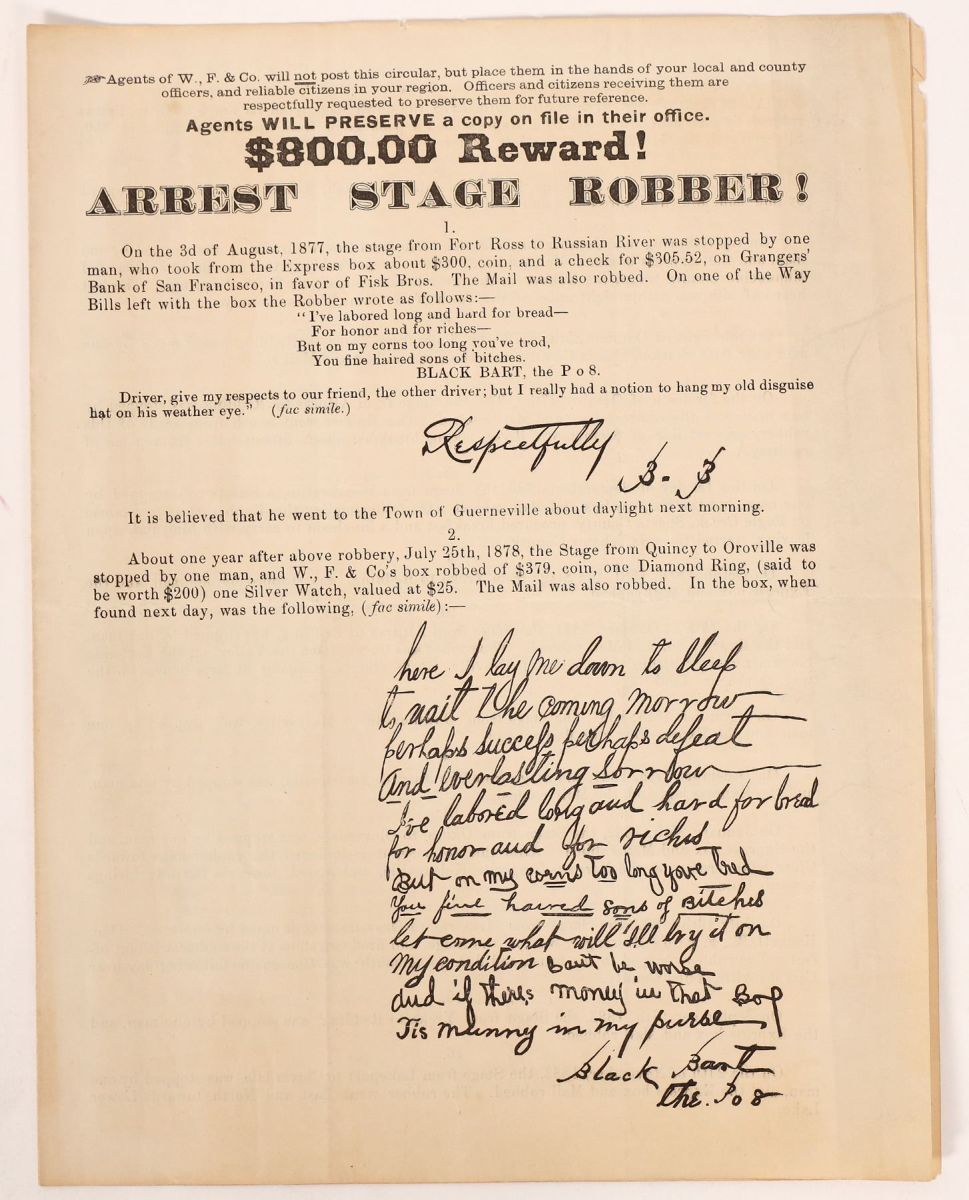 Agents of W., F. & Co. will not post this circular, but place them in the hands of your local and county
officers, and reliable citizens in your region. Officers and citizens receiving them are
respectfully requested to preserve them for future reference.
Agents WILL PRESERVE a copy on file in their office.
$800.00 Reward!
ARREST STAGE ROBBER!
1.
On the 3d of August, 1877, the stage from Fort Ross to Russian River was stopped by one
man, who took from the Express box about $300, coin, and a check for $305.52, on Grangers'
Bank of San Francisco, in favor of Fisk Bros. The Mail was also robbed. On one of the Way
Bills left with the box the Robber wrote as follows:—
"I've labored long and hard for bread—
For honor and for riches—
But on my corns too long you've trod,
You fine haired sons of bitches.
BLACK BART, the P o 8.
Driver, give my respects to our friend, the other driver; but I really had a notion to hang my old disguise
hat on his weather eye." (fac simile.)
Respectfully
B. B
It is believed that he went to the Town of Guerneville about daylight next morning.
2.
About one year after above robbery, July 25th, 1878, the Stage from Quincy to Oroville was
stopped by one man, and W., F. & Co's box robbed of $379, coin, one Diamond Ring, (said to
be worth $200) one Silver Watch, valued at $25. The Mail was also robbed. In the box, when
found next day, was the following, (fac simile):—
here I lay me down to Sleep
to wait the coming morrow
perhaps success perhaps defeat
And everlasting sorrow
I've labored long and hard for bread
for honor and for riches
But on my corns too long yove tred
You fine haired sons of Bitches
let come what will I'll try it on
My condition cant be worse
and if theres money in that Box
Tis munny in my purse
Black Bart
the. Po 8